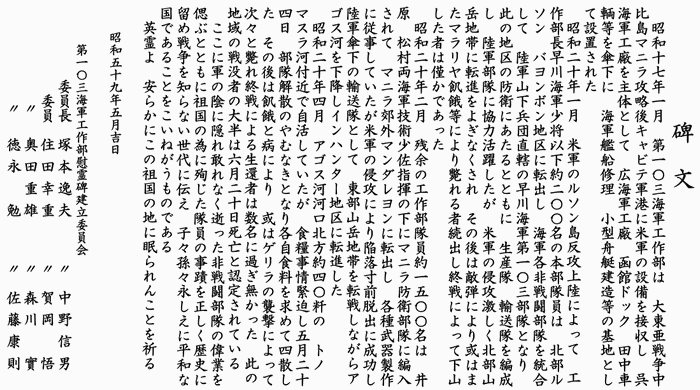 碑文
昭和十七年一月　第一〇三海軍工作部は　大東亜戦争中
比島マニラ攻略後キャビテ軍港に米軍の設備を接収し　呉
海軍工廠を主体として　広海軍工廠　函館ドック　田中車
輌等を傘下に　海軍艦船修理　小型舟艇建造等の基地とし
て設置された
昭和二十年一月　米軍のルソン島反攻上陸によって　工
作部長早川海軍少将以下約二〇〇名の本部隊員は　北部ル
ソン　バヨンボン地区に転出し　海軍各非戦闘部隊を統合
して　陸軍山下兵団直轄の早川海軍第一〇三部隊となり
此の地区の防衛にあたるとともに　生産隊　輸送隊を編成
し　陸軍部隊に協力活躍したが　米軍の侵攻激しく北部山
岳地帯に転進をよぎなくされ　その後は敵弾により或はま
たマラリヤ飢餓等により斃れる者続出し終戦によって下山
した者は僅かであった
昭和二十年二月　残余の工作部隊員約一五〇〇名は　井
原　松村両海軍技術少佐指揮の下にマニラ防衛部隊に編入
されて　マニラ郊外マンダレヨンに転出し　各種武器製作
に従事していたが米軍の侵攻により陥落寸前脱出に成功し
陸軍傘下の輸送隊として　東部山岳地帯を転戦しながらア
ゴス河を下降しインハンター地区に転進した
昭和二十年四月　アゴス河河口北方約四〇粁の　トノ
マスラ河付近で自活していたが　食糧事情緊迫し五月二十
四日　部隊解散のやむなきとなり各自食料を求めて四散し
た　その後は飢餓と病により　或はゲリラの襲撃によって
次々と斃れ終戦による生還者は数名に過ぎ無かった　此の
地域の戦没者の大半は六月二十日死亡と認定されている
ここに軍の陰に隠れ敢れなく逝った非戦闘部隊の偉業を
偲ぶとともに祖国の為に殉じた隊員の事蹟を正しく歴史に
留め戦争を知らない世代に伝え　子々孫々永しえに平和な
国であることをこいねがうものである
英霊よ　安らかにこの祖国の地に眠られんことを祈る
昭和五十九年五月吉日
第一〇三海軍工作部慰霊碑建立委員会
委員長　塚本逸夫　〃　中野信男
委員　住田幸重　〃　賀岡悟
〃　奥田重雄　〃　森川實
〃　徳永勉　〃　佐藤康則